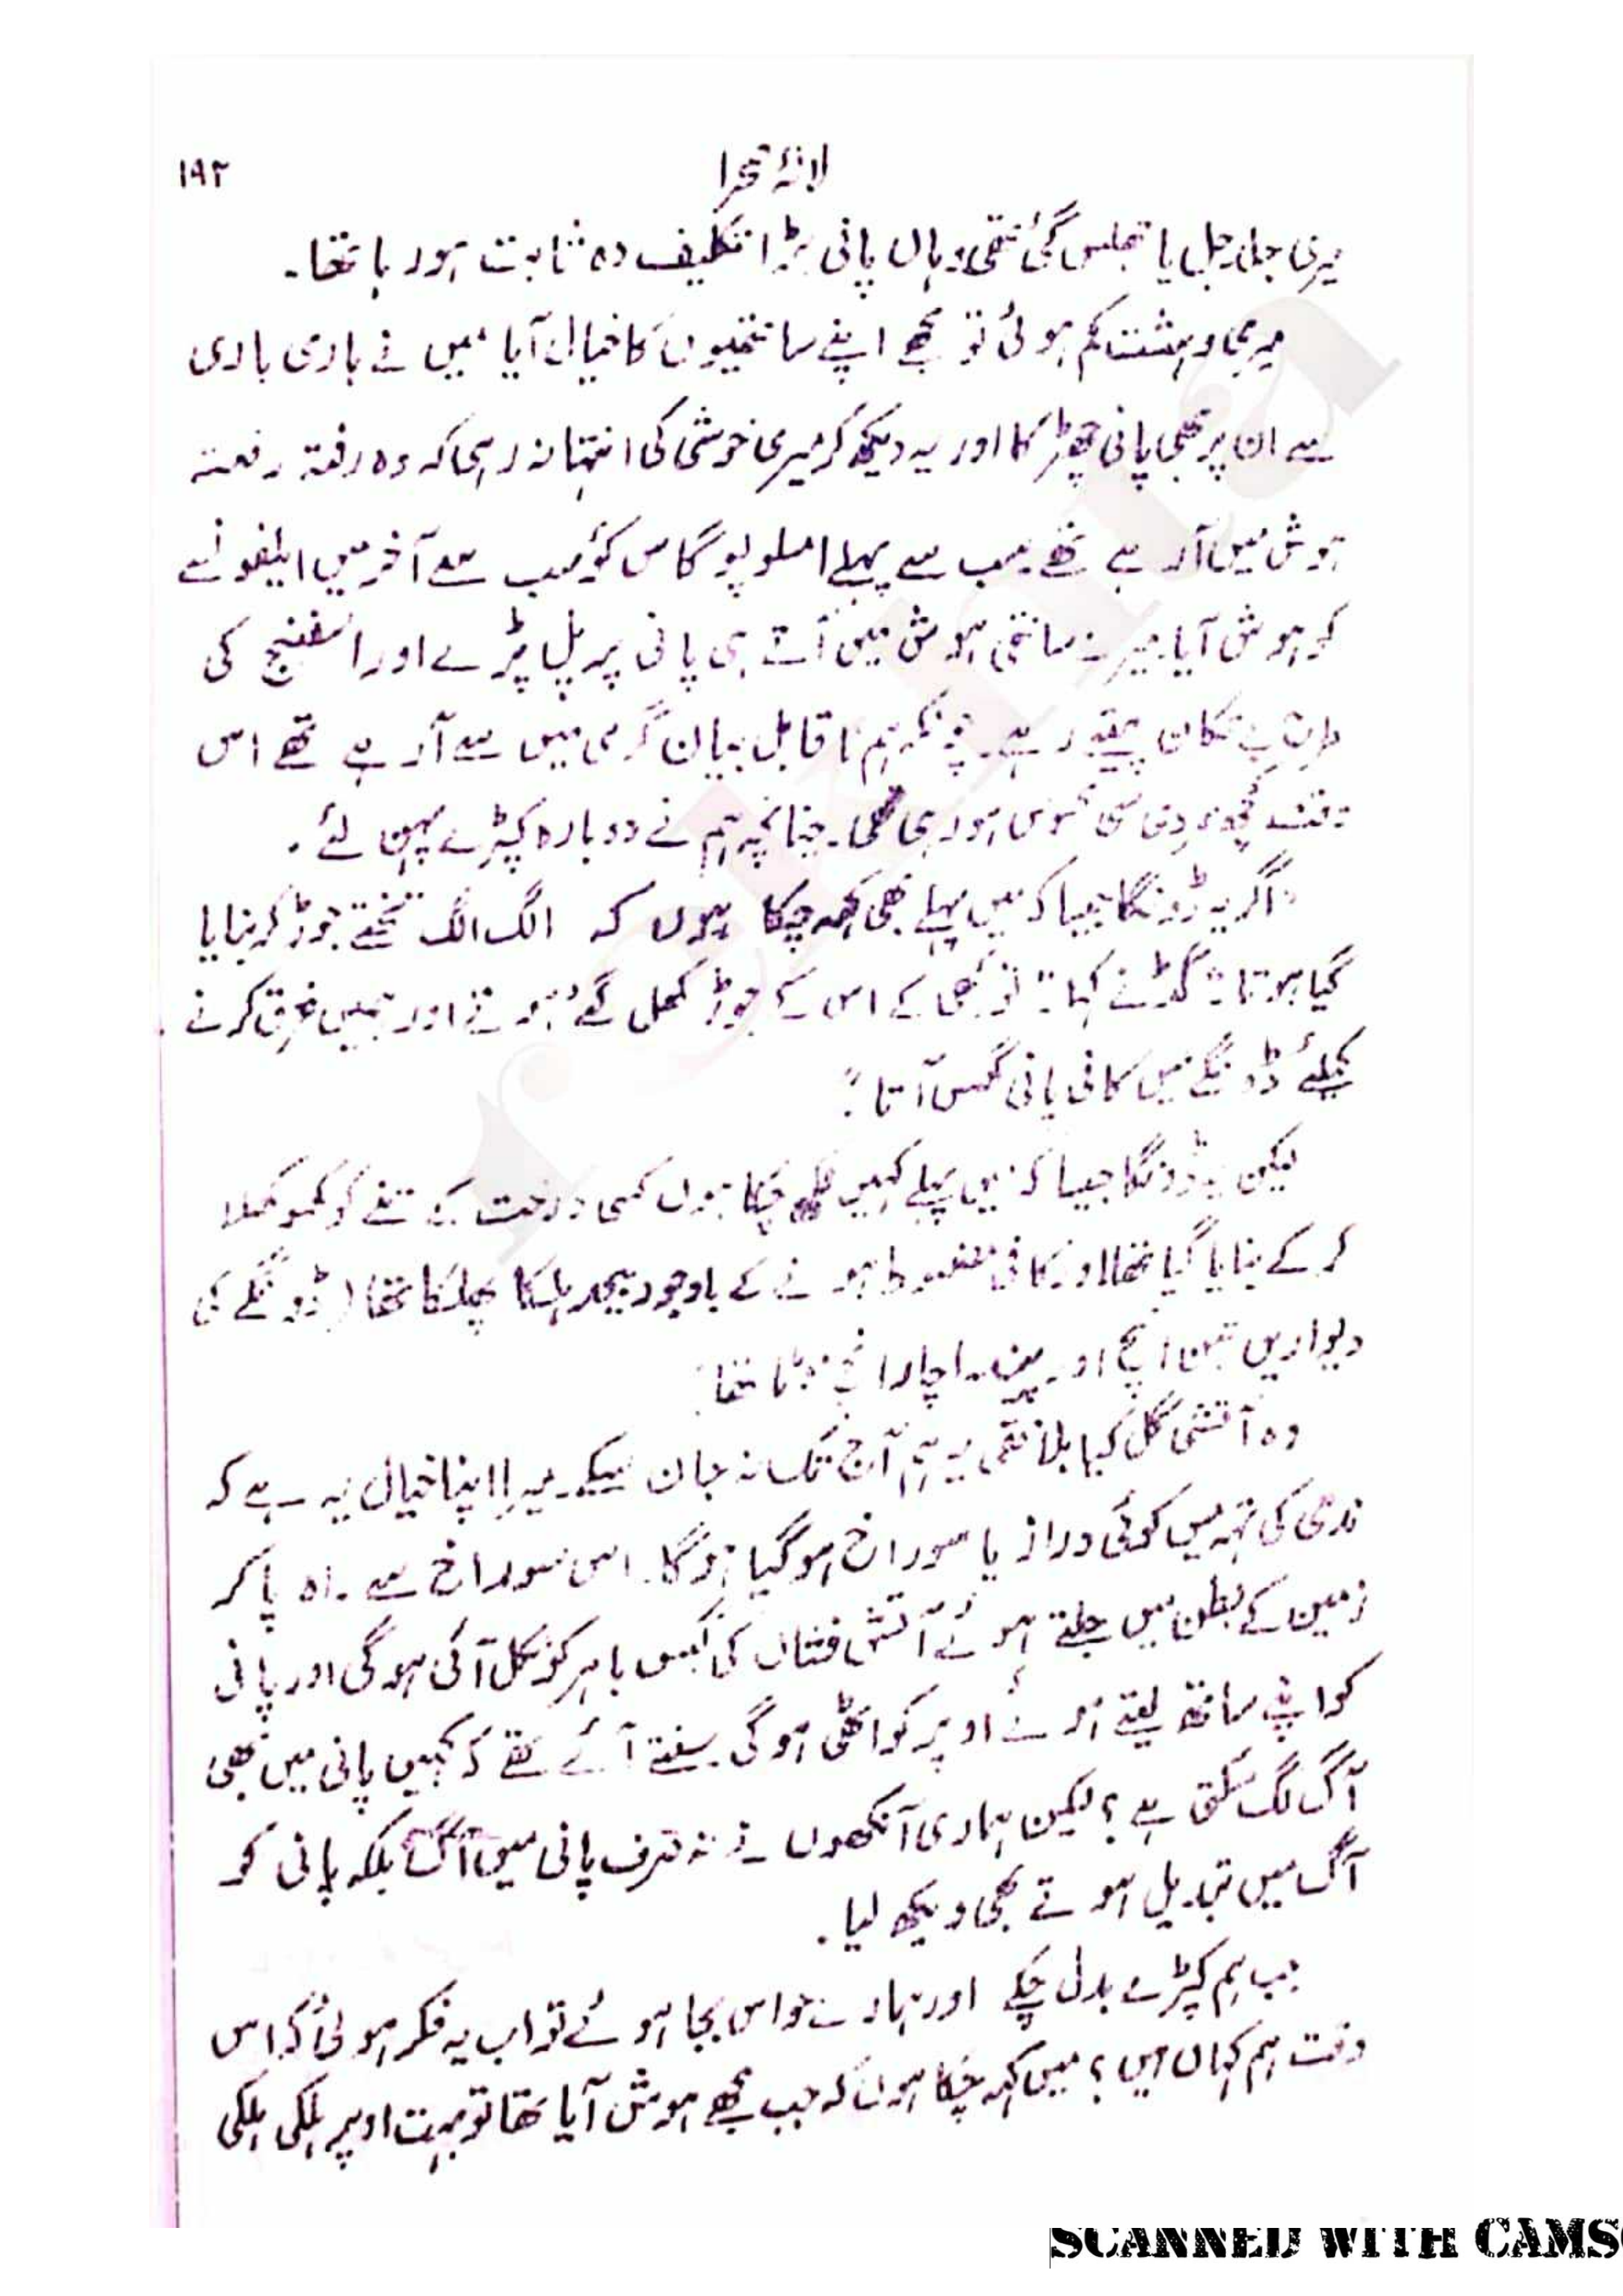 لالۂ صحرا ۱۹۲
میری جلد جل یا جھلس گئی تھی وہاں پانی بڑا تکلیف دہ ثابت ہو رہا تھا۔
میری دہشت کم ہوئی تو مجھے اپنے ساتھیوں کا خیال آیا میں نے باری باری
سے ان پر بھی پانی چھڑکا اور یہ دیکھ کر میری خوشی کی انتہا نہ رہی کہ وہ رفتہ رفتہ
ہوش میں آ رہے تھے سب سے پہلے امسلوپوگاس کو سب سے آخر میں ایلفونسے
کو ہوش آیا۔ میرے ساتھی ہوش میں آتے ہی پانی پر پل پڑے اور اسفنج کی
طرح بے تکان پیتے رہے۔ چونکہ ہم ناقابل بیان گرمی میں سے آ رہے تھے اس
وقت کچھ سردی سی محسوس ہو رہی تھی۔ چنانچہ ہم نے دوبارہ کپڑے پہن لئے۔
"اگر یہ ڈونگا جیسا کہ میں پہلے بھی کہہ چکا ہوں کہ الگ الگ تختے جوڑ کر بنایا
گیا ہوتا" گڈ نے کہا "تو کبھی کے اس کے جوڑ کھل گئے ہوتے اور ہمیں غرق کرنے
کیلئے ڈونگے میں کافی پانی گھس آتا"۔
لیکن یہ ڈونگا جیسا کہ میں پہلے کہیں لکھ چکا ہوں کسی درخت کے تنے کو کھوکھلا
کر کے بنایا گیا تھا اور کافی مضبوط ہونے کے باوجود بیحد ہلکا پھلکا تھا (ڈونگے کی
دیواریں تین انچ اور پیندا چار انچ موٹا تھا)
وہ آتشی گل کیا بلا تھی یہ ہم آج تک نہ جان سکے۔ میرا اپنا خیال یہ ہے کہ
ندی کی تہہ میں کوئی دراز یا سوراخ ہو گیا ہوگا۔ اس سوراخ سے راہ پا کر
زمین کے بطن میں جلتے ہوئے آتش فشاں کی گیس باہر کو نکل آئی ہوگی اور پانی
کو اپنے ساتھ لیتے ہوئے اوپر کو اٹھی ہوگی۔ سنتے آئے تھے کہ کہیں پانی میں بھی
آگ لگ سکتی ہے؟ لیکن ہماری آنکھوں نے نہ صرف پانی میں آگ بلکہ پانی کو
آگ میں تبدیل ہوتے بھی دیکھ لیا۔
جب ہم کپڑے بدل چکے اور ہمارے حواس بجا ہوئے تو اب یہ فکر ہوئی کہ اس
وقت ہم کہاں ہیں؟ میں کہہ چکا ہوں کہ جب مجھے ہوش آیا تھا تو بہت اوپر ہلکی ہلکی
rekhta
SCANNED WITH CAMS